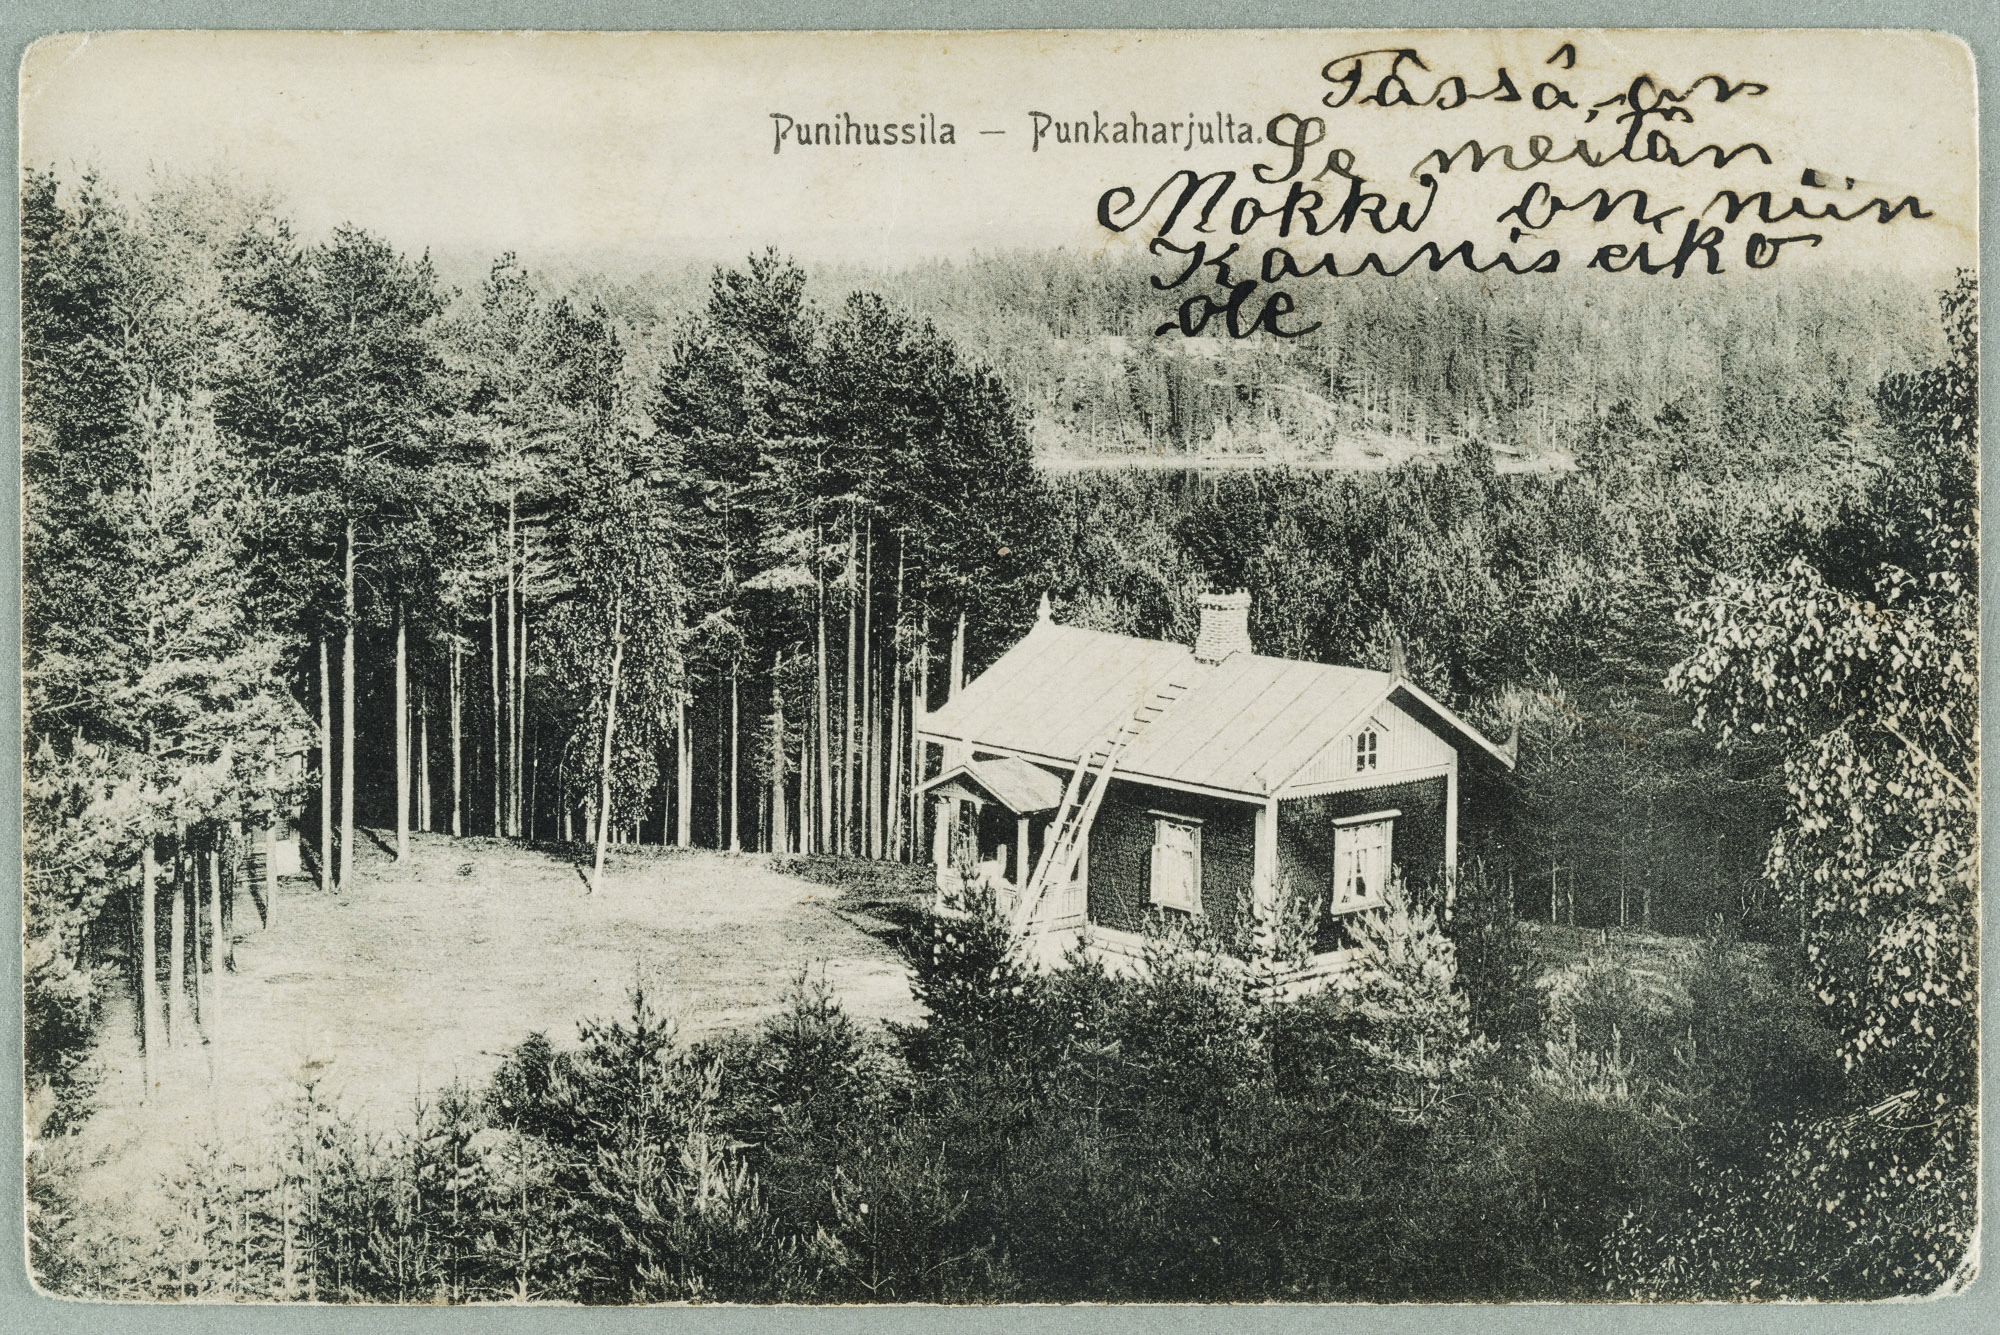 Punihussila — Punkaharjulta.
Tässä, on
Se meitän
Mökki on niin
Kaunis eikö
ole